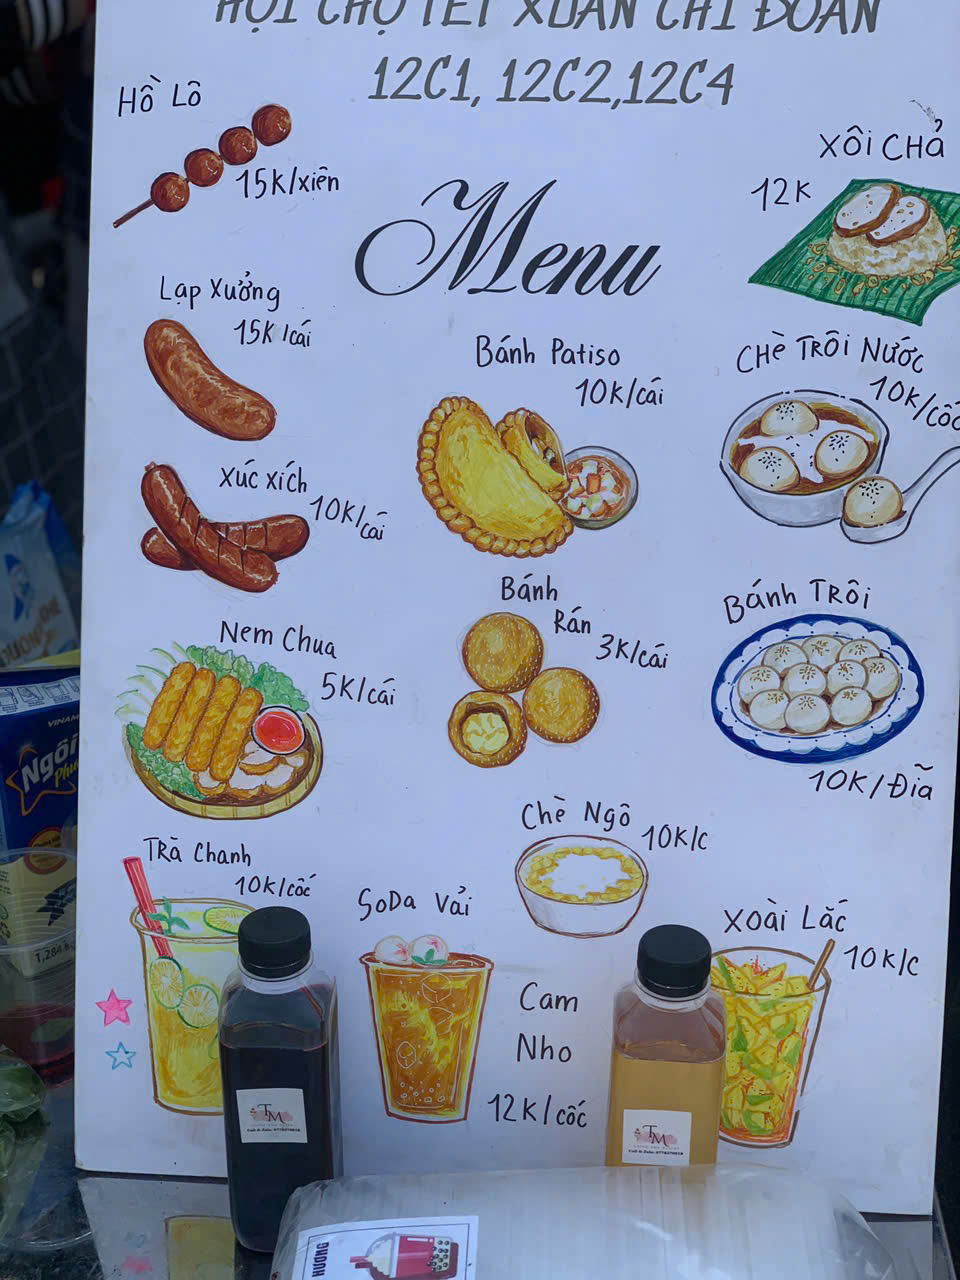 HỘI CHỢ TẾT XUÂN CHI ĐOÀN
12C1, 12C2,12C4
Menu
HỒ LÔ
15K/xiên
Lạp Xưởng
15K/cái
Xúc xích
10K/cái
Nem Chua
5K/cái
Trà Chanh
10K/cốc
Bánh Patiso
10K/cái
Bánh
Rán
3K/cái
Chè Ngô
10K/c
SoDa Vải
Cam
Nho
12K/cốc
XÔI CHẢ
12K
CHÈ TRÔI NƯỚC
10K/cốc
Bánh TRÔI
10K/Đĩa
XOÀI LẮC
10K/c
TM
TM
VINAM
Ngôi
HƯƠNG